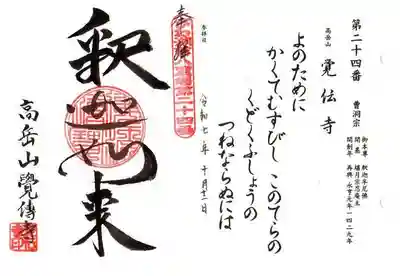 第二十四番 曹洞宗
御本尊 釈迦牟尼佛
開基
開創年 再興 永享元年一四二九年
高岳山 覚伝寺
よのために
かくてむすびし このてらの
くどくふしょうの
つねならぬには
参拝日
令和七年 十月
奉拝
第二十四番
釈迦如来
高岳山覺傳寺